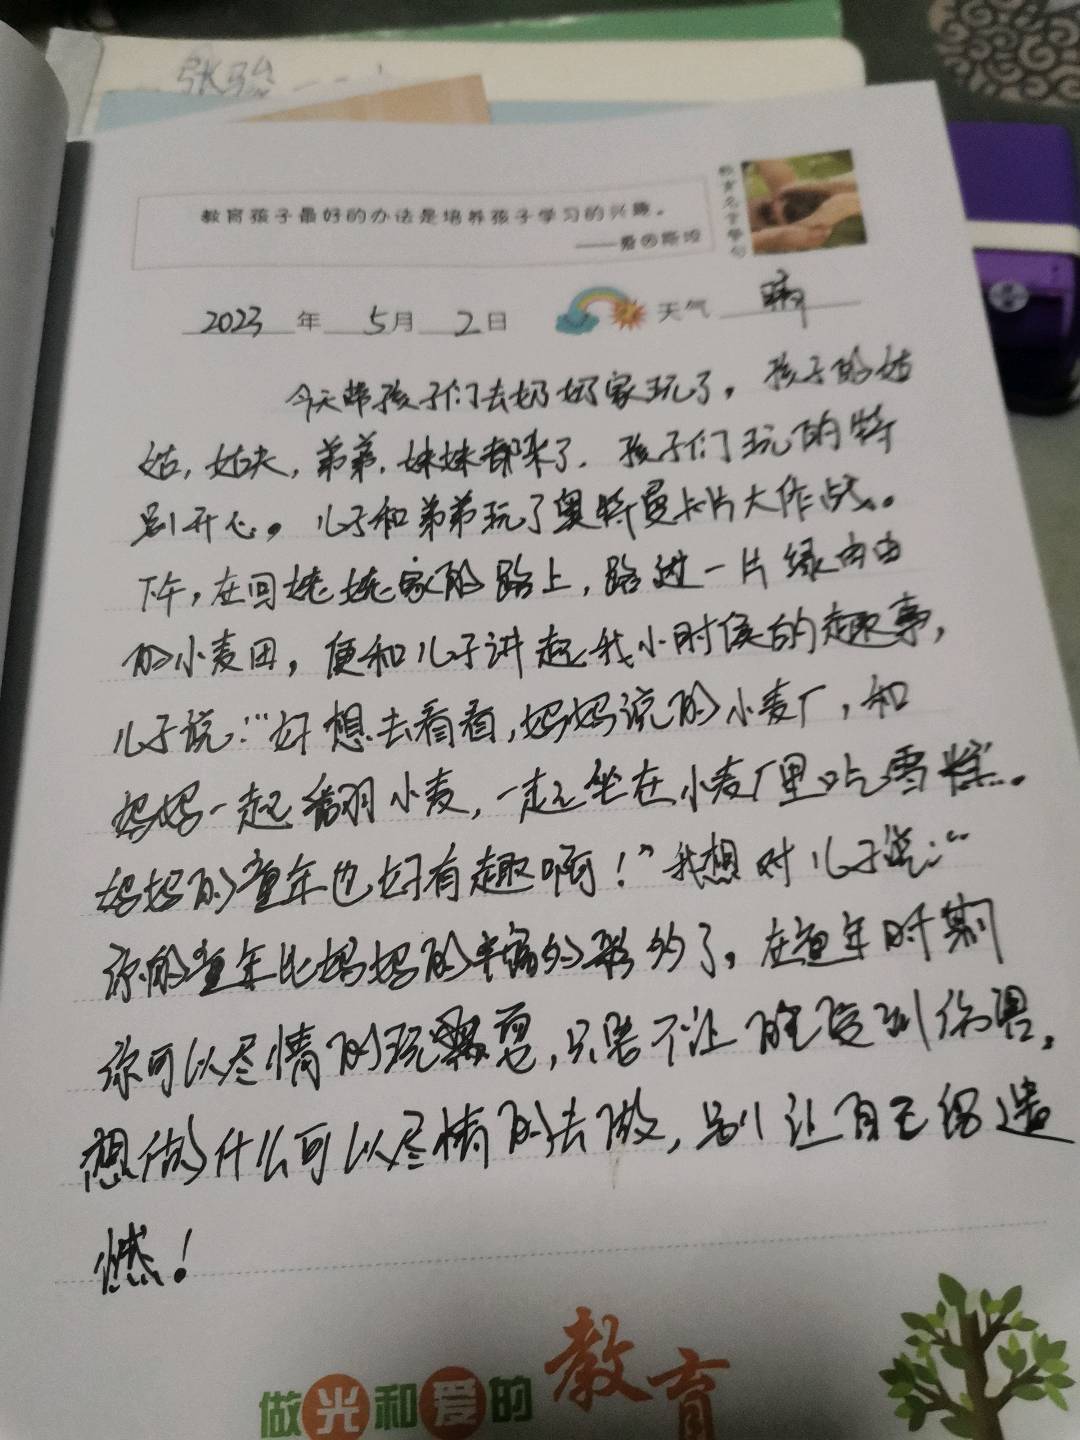 张骀
教育孩子最好的办法是培养孩子学习的兴趣。
——爱因斯坦
教育名言警句
2023年 5月 2日 天气 晴
今天带孩子们去奶奶家玩了，孩子的姑
姑，姑夫，弟弟，妹妹都来了．孩子们玩的特
别开心。儿子和弟弟玩了奥特曼卡片大作战。
下午，在回姥姥家的路上，路过一片绿油油
的小麦田，便和儿子讲起我小时候的趣事，
儿子说：“好想去看看，妈妈说的小麦厂，和
妈妈一起翻小麦，一起坐在小麦厂里吃雪糕。
妈妈的童年也好有趣啊！”我想对儿子说：“
你的童年比妈妈的丰富多彩多了，在童年时期
你可以尽情的玩耍，只要不让自己受到伤害，
想做什么可以尽情的去做，别让自己留遗
憾！
做光和爱的教育